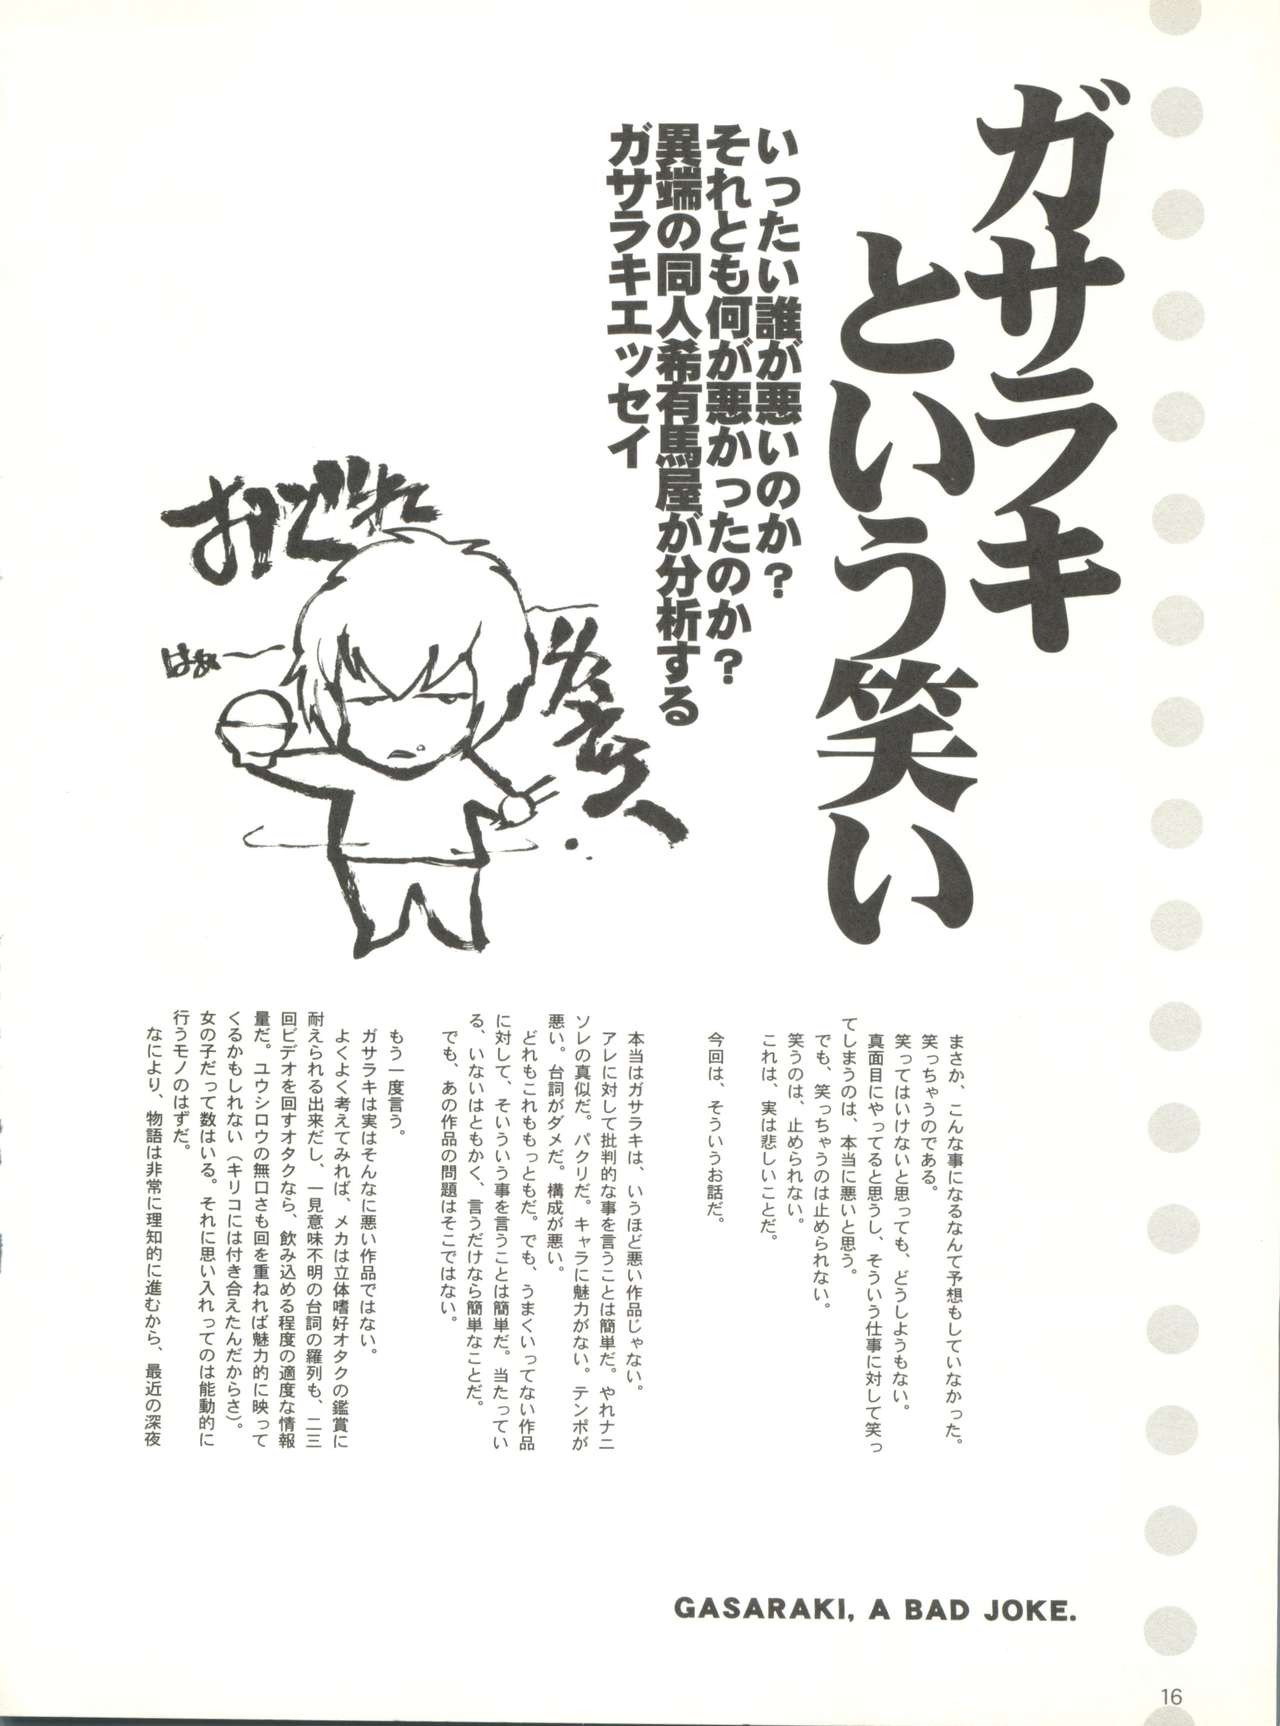 ガサラキ
という笑い
いったい誰が悪いのか？
それとも何が悪かったのか？
異端の同人希有馬屋が分析する
ガサラキエッセイ
おでれ
はぁ〜
まさか、こんな事になるなんて予想もしていなかった。
笑っちゃうのである。
笑ってはいけないと思っても、どうしようもない。
真面目にやってると思うし、そういう仕事に対して笑っ
てしまうのは、本当に悪いと思う。
でも、笑っちゃうのは止められない。
笑うのは、止められない。
これは、実は悲しいことだ。
今回は、そういうお話だ。
本当はガサラキは、いうほど悪い作品じゃない。
アレに対して批判的な事を言うことは簡単だ。やれナニ
ソレの真似だ。パクリだ。キャラに魅力がない。テンポが
悪い。台詞がダメだ。構成が悪い。
どれもこれももっともだ。でも、うまくいってない作品
に対して、そいういう事を言うことは簡単だ。当たってい
る、いないはともかく、言うだけなら簡単なことだ。
でも、あの作品の問題はそこではない。
もう一度言う。
ガサラキは実はそんなに悪い作品ではない。
よくよく考えてみれば、メカは立体嗜好オタクの鑑賞に
耐えられる出来だし、一見意味不明の台詞の羅列も、二三
回ビデオを回すオタクなら、飲み込める程度の適度な情報
量だ。ユウシロウの無口さも回を重ねれば魅力的に映って
くるかもしれない（キリコには付き合えたんだからさ）。
女の子だって数はいる。それに思い入れってのは能動的に
行うモノのはずだ。
なにより、物語は非常に理知的に進むから、最近の深夜
GASARAKI, A BAD JOKE.
16